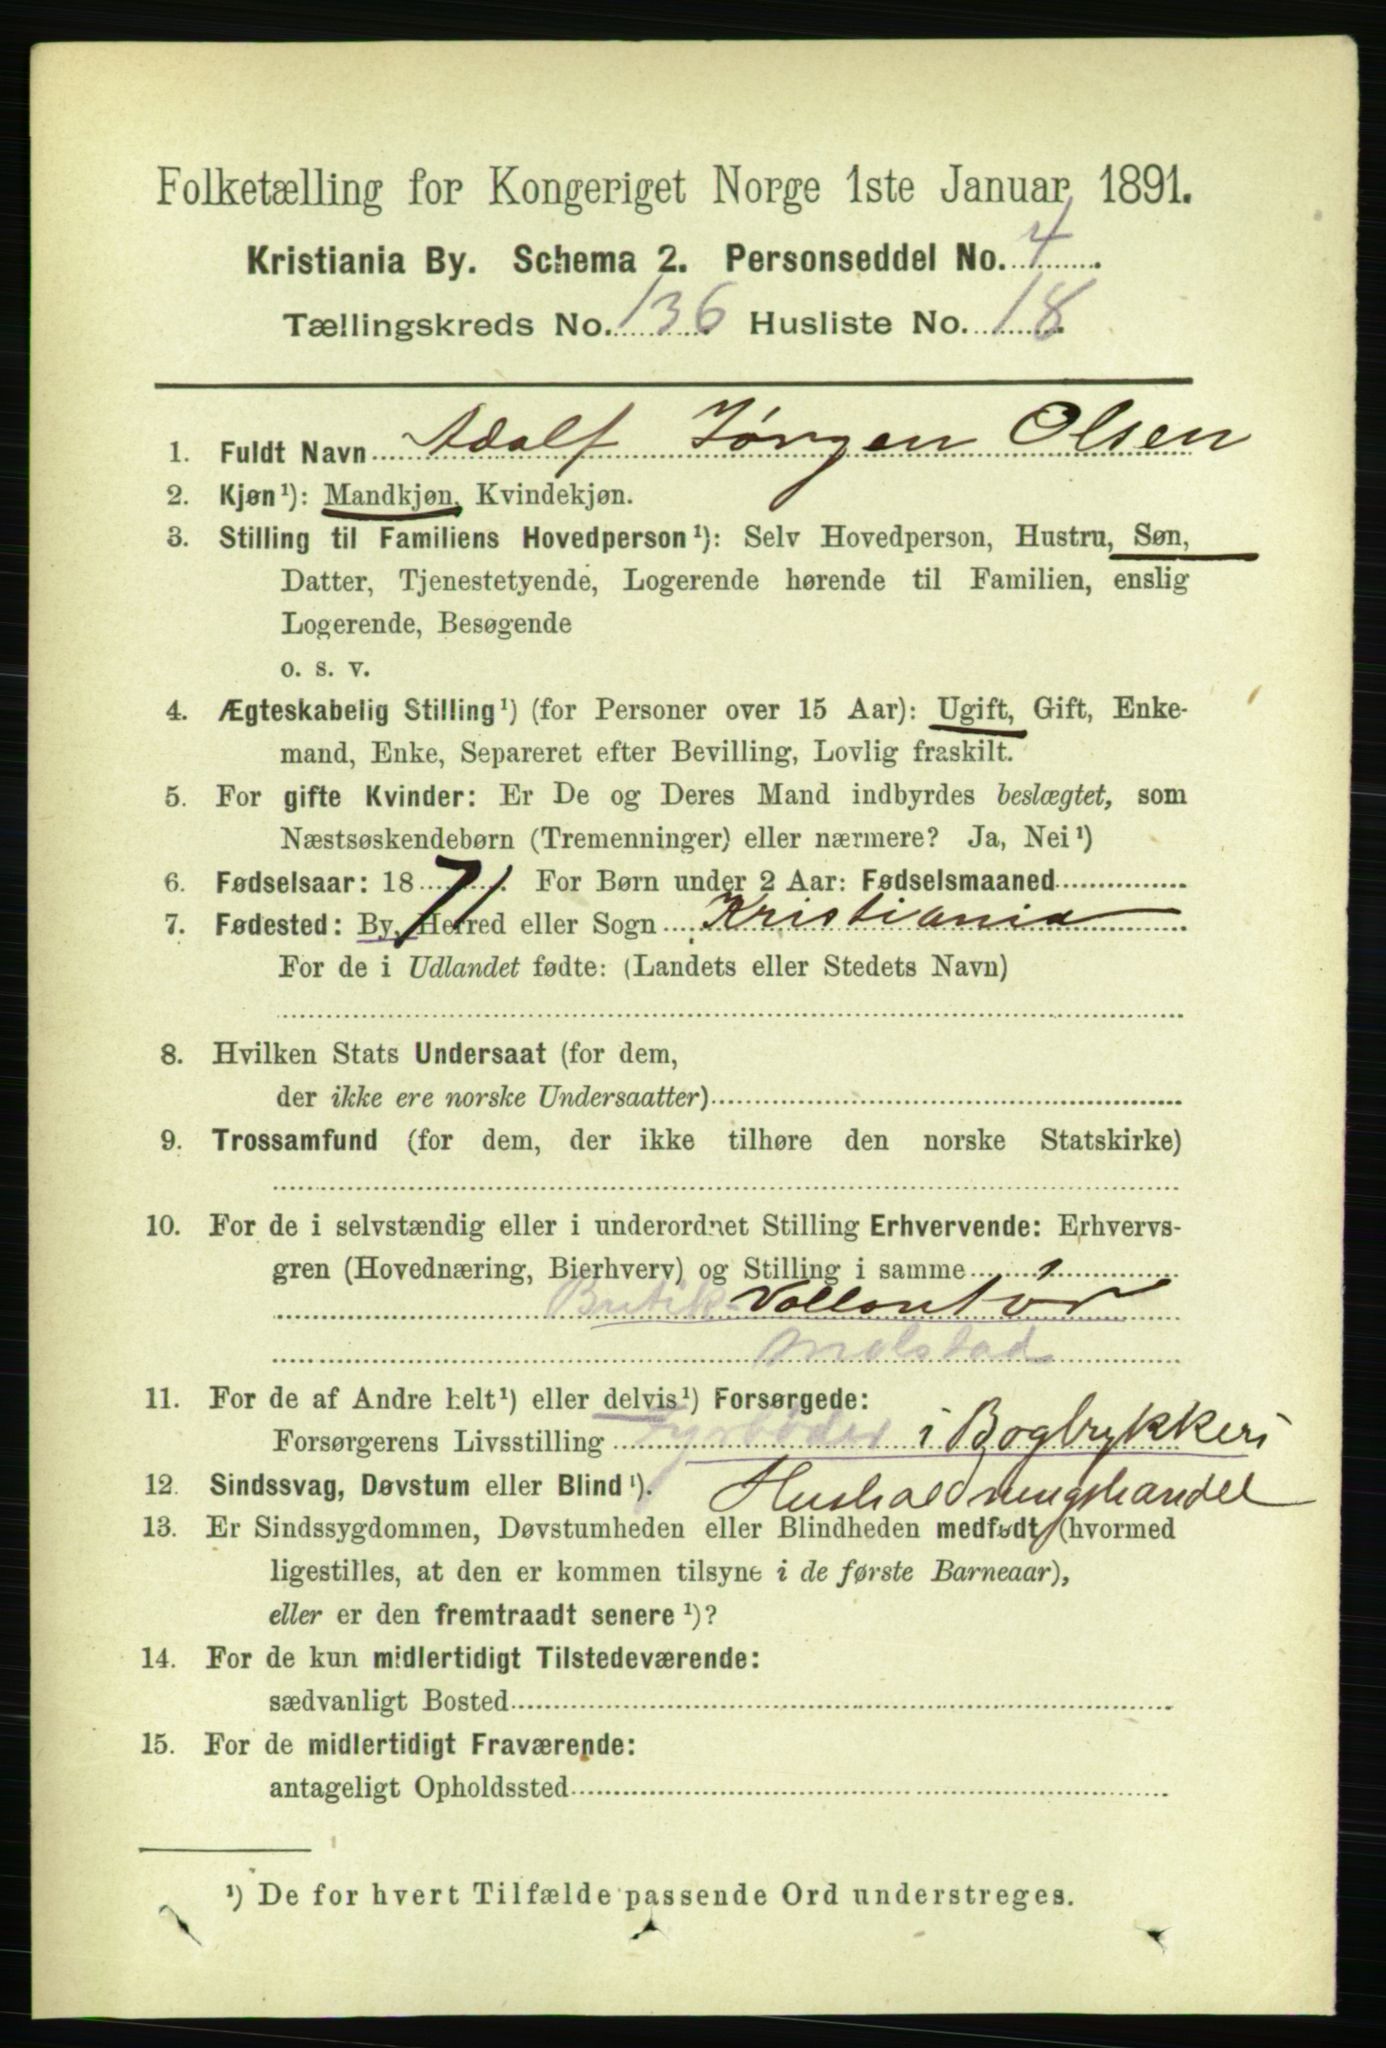 Folketælling for Kongeriget Norge 1ste Januar 1891.
Kristiania By. Schema 2. Personseddel No. 4
Tællingskreds No. 136 Husliste No. 18
1. Fuldt Navn Adolf Jørgen Olsen
2. Kjøn¹): Mandkjøn, Kvindekjøn.
3. Stilling til Familiens Hovedperson¹): Selv Hovedperson, Hustru, Søn,
Datter, Tjenestetyende, Logerende hørende til Familien, enslig
Logerende, Besøgende
o. s. v.
4. Ægteskabelig Stilling¹) (for Personer over 15 Aar): Ugift, Gift, Enke-
mand, Enke, Separeret efter Bevilling, Lovlig fraskilt.
5. For gifte Kvinder: Er De og Deres Mand indbyrdes beslægtet, som
Næstsøskendebørn (Tremenninger) eller nærmere? Ja, Nei¹)
6. Fødselsaar: 1871. For Børn under 2 Aar: Fødselsmaaned
7. Fødested: By, Herred eller Sogn Kristiania
For de i Udlandet fødte: (Landets eller Stedets Navn)
8. Hvilken Stats Undersaat (for dem,
der ikke ere norske Undersaatter)
9. Trossamfund (for dem, der ikke tilhøre den norske Statskirke)
10. For de i selvstændig eller i underordnet Stilling Erhvervende: Erhvervs-
gren (Hovednæring, Bierhverv) og Stilling i samme
Butik- Vollontør
Molstad
11. For de af Andre helt¹) eller delvis¹) Forsørgede:
Forsørgerens Livsstilling Fyrbøder i Bogtrykkeri
12. Sindssvag, Døvstum eller Blind¹). Husholdningshandel
13. Er Sindssygdommen, Døvstumheden eller Blindheden medfødt (hvormed
ligestilles, at den er kommen tilsyne i de første Barneaar),
eller er den fremtraadt senere¹)?
14. For de kun midlertidigt Tilstedeværende:
sædvanligt Bosted
15. For de midlertidigt Fraværende:
antageligt Opholdssted
¹) De for hvert Tilfælde passende Ord understreges.